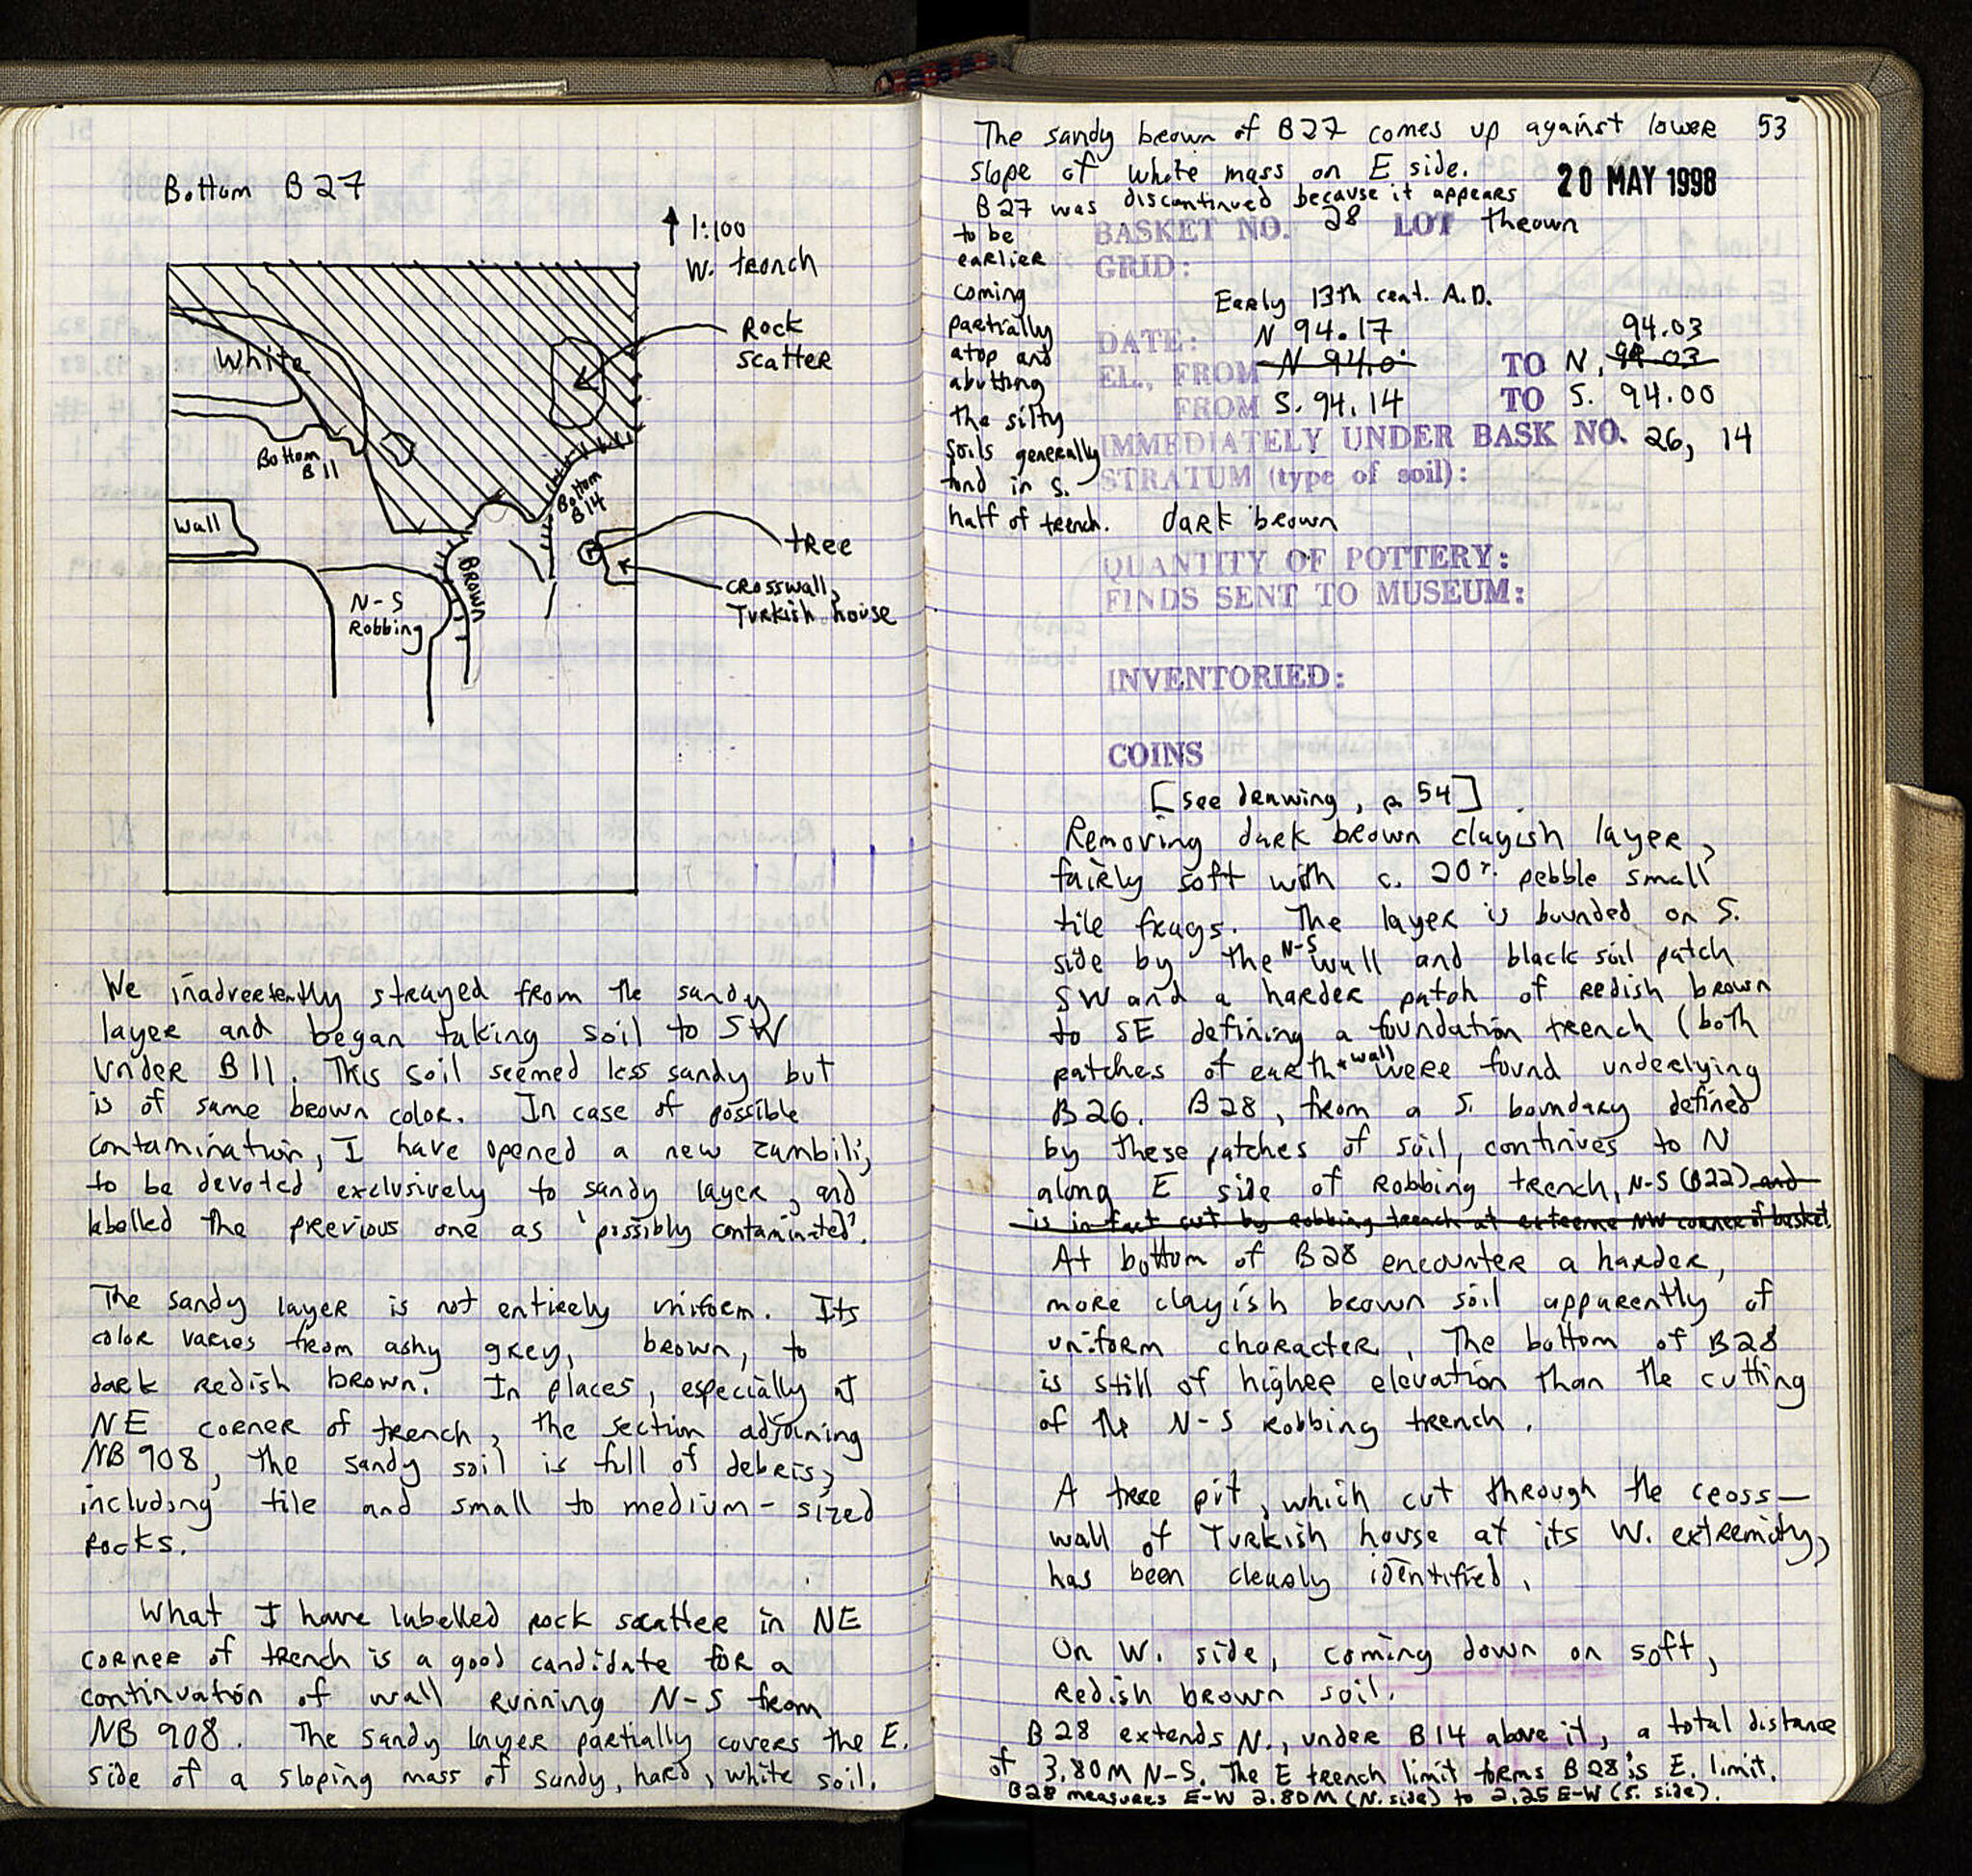 Bottom B27
1:100
W. trench
Rock
scatter
White
Bottom
B11
Bottom
B14
Wall
tree
Brown
N-S
Robbing
crosswall,
Turkish house
We inadvertently strayed from the sandy
layer and began taking soil to SW
under B11. This soil seemed less sandy but
is of same brown color. In case of possible
contamination, I have opened a new zambili,
to be devoted exclusively to sandy layer, and
labelled the previous one as 'possibly contaminated'.
The sandy layer is not entirely uniform. Its
color varies from ashy grey, brown, to
dark redish brown. In places, especially at
NE corner of trench, the section adjoining
NB 908, the sandy soil is full of debris,
including tile and small to medium-sized
rocks.
What I have labelled rock scatter in NE
corner of trench is a good candidate for a
continuation of wall running N-S from
NB 908. The sandy layer partially covers the E.
side of a sloping mass of sandy, hard, white soil.
The sandy brown of B27 comes up against lower 53
slope of white mass on E side.
20 MAY 1998
B27 was discontinued because it appears
to be
earlier
coming
partially
atop and
abutting
the silty
soils generally
fond in S.
half of trench.
BASKET NO. 28 LOT thrown
GRID:
Early 13th cent. A.D.
DATE: N 94.17 94.03
EL., FROM N 94.0 TO N. 94.03
FROM S. 94.14 TO S. 94.00
IMMEDIATELY UNDER BASK NO. 26, 14
STRATUM (type of soil):
dark brown
QUANTITY OF POTTERY:
FINDS SENT TO MUSEUM:
INVENTORIED:
COINS
[see drawing, p. 54]
Removing dark brown clayish layer,
fairly soft with c. 20% pebble small
tile frags. The layer is bounded on S.
side by the N-S wall and black soil patch
SW and a harder patch of redish brown
to SE defining a foundation trench (both
patches of earth + wall were found underlying
B26. B28, from a S. boundary defined
by these patches of soil, continues to N
along E side of Robbing trench, N-S (B22) and
is in fact cut by robbing trench at extreme NW corner of basket
At bottom of B28 encounter a harder,
more clayish brown soil apparently of
uniform character. The bottom of B28
is still of higher elevation than the cutting
of the N-S Robbing trench.
A tree pit, which cut through the cross-
wall of Turkish house at its W. extremity,
has been clearly identified.
On W. side, coming down on soft,
redish brown soil.
B28 extends N., under B14 above it, a total distance
of 3.80M N-S. The E trench limit forms B28's E. limit.
B28 measures E-W 2.80M (N. side) to 2.25 E-W (S. side).